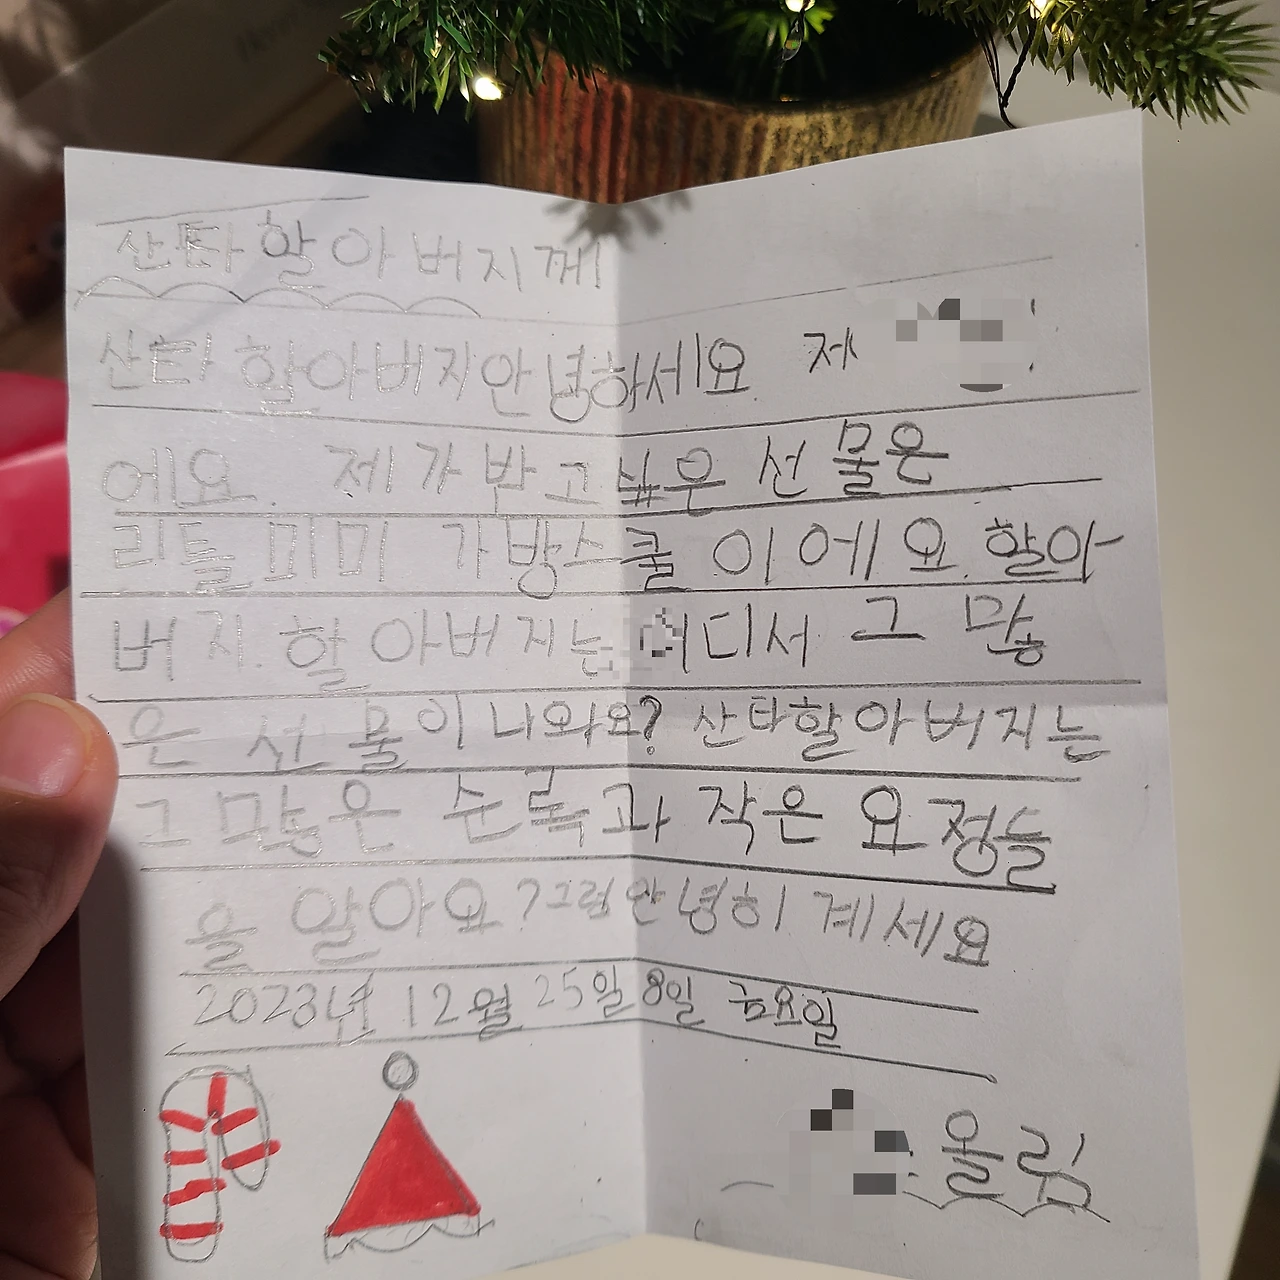 산타할아버지께!
산타 할아버지안녕하세요. 저
에요. 제가 받고싶은 선물은
리틀 미미 가방스쿨이에요. 할아
버지. 할아버지는 어디서 그 많
은 선물이 나와요? 산타할아버지는
그 많은 순록과 작은 요정들
을 알아요? 그럼 안녕히 계세요
2023년 12월 25일 8일 금요일
올림